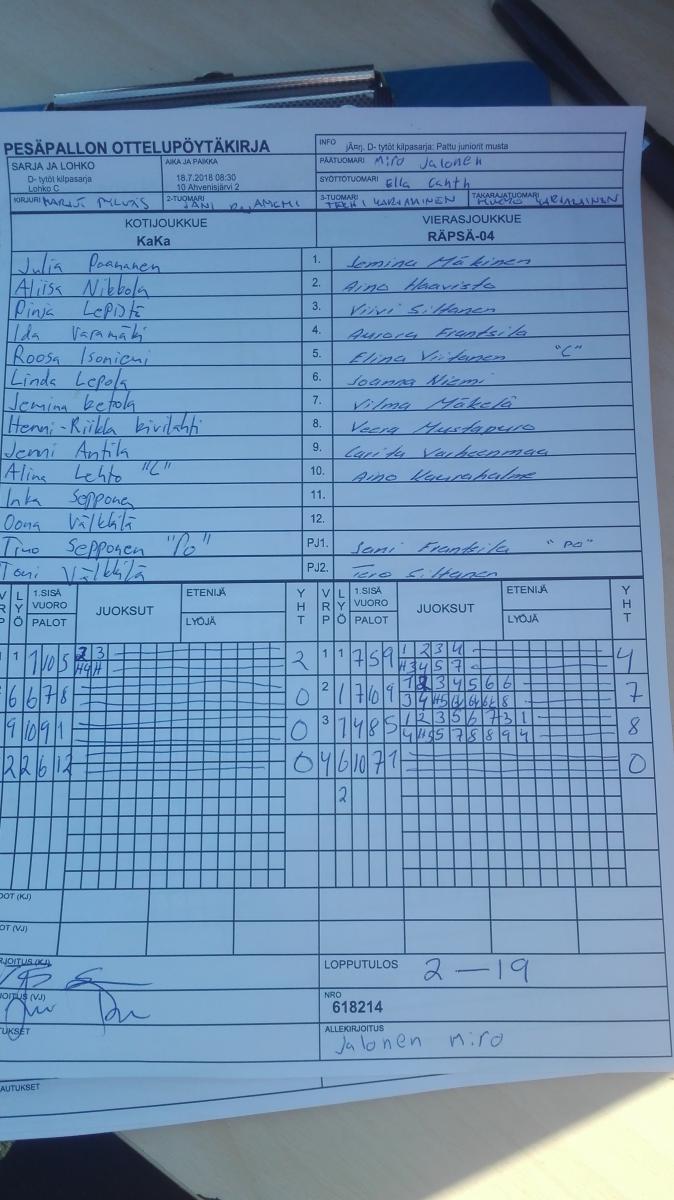 PESÄPALLON OTTELUPÖYTÄKIRJA
INFO jÃ¤rj. D- tytöt kilpasarja: Pattu juniorit musta
SARJA JA LOHKO
D- tytöt kilpasarja
Lohko C
AIKA JA PAIKKA
18.7.2018 08:30
10 Ahvenisjärvi 2
PÄÄTUOMARI Miro Jalonen
SYÖTTÖTUOMARI Ella Canth
KIRJURI
2-TUOMARI JANI
3-TUOMARI
TAKARAJATUOMARI
KOTIJOUKKUE
KaKa
VIERASJOUKKUE
RÄPSÄ-04
Julia Paananen 1. Jemina Mäkinen
Aliisa Nikkola 2. Aino Haavisto
Pinja Lepistä 3. Viivi Siltanen
Ida Varamäki 4. Aurora Frantsila
Roosa Isoniemi 5. Elina Viitanen "C"
Linda Lepola 6. Joanna Niemi
Jemina Ketola 7. Vilma Mäkelä
Henni-Riikka Kivilahti 8. Veera Mustapuro
Jenni Antila 9. Carita Varheenmaa
Alina Lehto "C" 10. Aino Kaurahalme
Inka Sepponen 11.
Oona Välkkilä 12.
Timo Sepponen "Po" PJ1. Sami Frantsila "PO"
Toni Välkkilä PJ2. Tero Siltanen
VRP LYÖ 1.SISÄ VUORO PALOT JUOKSUT ETENIJÄ LYÖJÄ YHT VRP LYÖ 1.SISÄ VUORO PALOT JUOKSUT ETENIJÄ LYÖJÄ YHT
1 1 1 10 5 2 3 2 1 1 7 5 9 1 2 3 4 4
H4 H H3 4 5 7
6 6 7 8 0 2 1 7 10 9 1 2 3 4 5 6 6 7
9 10 9 1 0 3 1 4 8 5 1 2 3 5 6 7 3 1 8
4 H5 5 7 8 8 9 4
2 2 6 12 0 4 6 10 7 1 0
2
OT (KJ)
OT (VJ)
LOPPUTULOS 2 – 19
NRO
618214
ALLEKIRJOITUS
Jalonen Miro
AUTUKSET